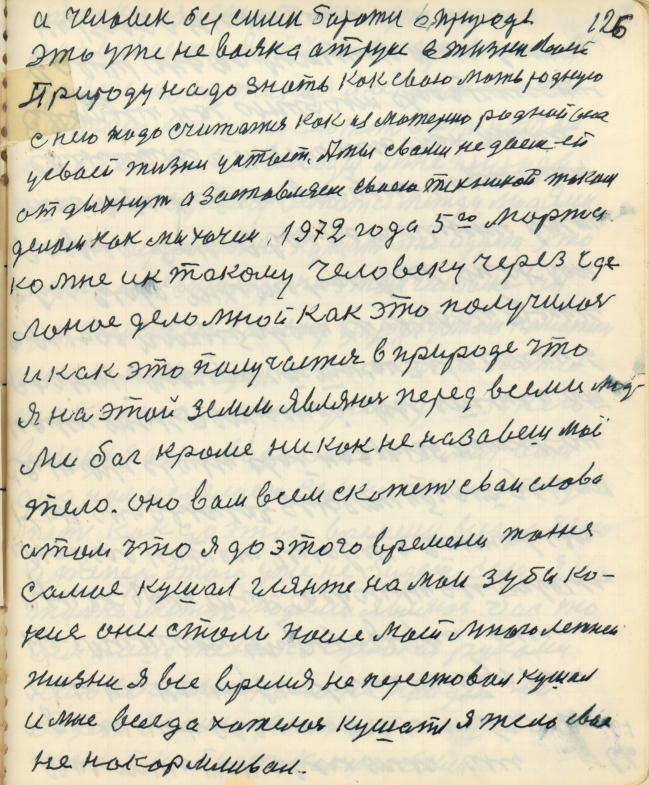 126
а человек без сили бароти в природе
это уже не вояка а трус в жизни своей
Природу надо знать как свою мать родную
с нею надо считатся как из матерью радной она
усваей жизни уктает. Амы сваим не даем-ей
отдыхнут а заставляем своею техникой таком
делом как мы хочем. 1972 года 5го марта.
ко мне ик такому человеку через сде
лоное дело мной как это получилос
и как это получается в природе что
я на этой земли являюс перед всеми люд
ми бог кроме никак не назавеш маё
тело. оно вам всем скажет сваи слова
атом что я до этого времени тоже
самое кушал глянте на мои зубы ка-
кие они стали после моей многолетней
жизни я все время не переставал кушал
и мне всегда хателос кушать я тело свае
не накармливал.